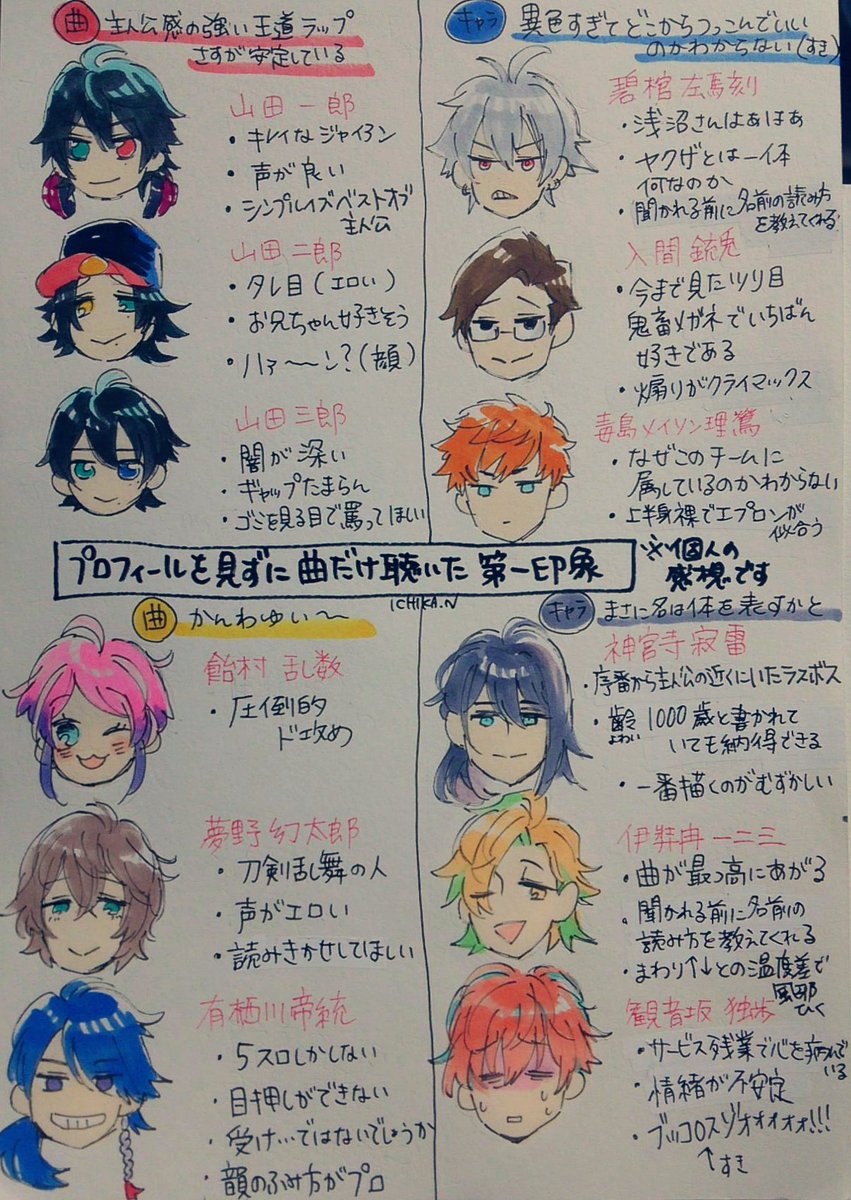 曲 主人公感の強い王道ラップ
さすが安定している
山田一郎
・キレイなジャイアン
・声が良い
・シンプルイズベストオブ
主人公
山田二郎
・タレ目(エロい)
・お兄ちゃん好きそう
・ハァ〜〜ン?(顔)
山田三郎
・闇が深い
・ギャップたまらん
・ゴミを見る目で罵ってほしい
キャラ 異色すぎてどこからつっこんでいい
のかわからない(すき)
碧棺左馬刻
・浅沼さんはあはぁ
・ヤクザとは一体
何なのか
・聞かれる前に名前の読み方
を教えてくれる
入間銃兎
・今まで見たツリ目
鬼畜メガネでいちばん
好きである
・煽りがクライマックス
毒島メイソン理鶯
・なぜこのチームに
属しているのかわからない
・上半身裸でエプロンが
似合う
プロフィールを見ずに曲だけ聴いた 第一印象
※個人の
感想です
ICHIKA.N
曲 かんわゆい〜
飴村乱数
・圧倒的
ド攻め
夢野幻太郎
・刀剣乱舞の人
・声がエロい
・読みきかせしてほしい
有栖川帝統
・5スロしかしない
・目押しができない
・受け…ではないでしょうか
・韻のふみ方がプロ
キャラ まさに名は体を表すかと
神宮寺寂雷
・序盤から主人公の近くにいたラスボス
・齢1000歳と書かれて
よわい
いても納得できる
・一番描くのがむずかしい
伊弉冉一二三
・曲が最っ高にあがる
・聞かれる前に名前の
読み方を教えてくれる
・まわり↑↓との温度差で
風邪
ひく
観音坂 独歩
・サービス残業で心を病んで
いる
・情緒が不安定
・ブッコロスゾオォオォォ!!!
↑
すき